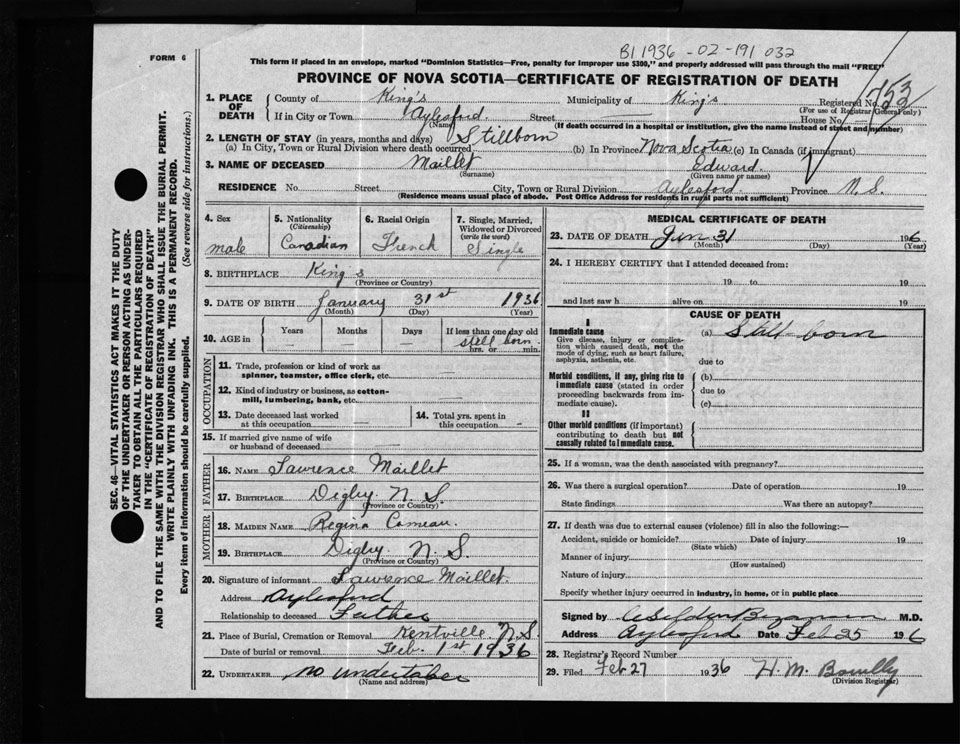 B1 1936 - 02 - 191 032
FORM 6
This form if placed in an envelope, marked "Dominion Statistics—Free, penalty for improper use $300," and properly addressed will pass through the mail "FREE"
PROVINCE OF NOVA SCOTIA—CERTIFICATE OF REGISTRATION OF DEATH
1. PLACE OF DEATH
County of King's Municipality of King's Registered No. 153
(For use of Registrar General only)
If in City or Town Aylesford. Street House No.
(Name) (If death occurred in a hospital or institution, give the name instead of street and number)
2. LENGTH OF STAY (in years, months and days) Stillborn
(a) In City, Town or Rural Division where death occurred (b) In Province Nova Scotia (c) In Canada (if immigrant)
3. NAME OF DECEASED Maillet Edward.
(Surname) (Given name or names)
RESIDENCE No. Street City, Town or Rural Division Aylesford. Province N. S.
(Residence means usual place of abode. Post Office Address for residents in rural parts not sufficient)
SEC. 46—VITAL STATISTICS ACT MAKES IT THE DUTY
OF THE UNDERTAKER OR PERSON ACTING AS UNDER-
TAKER TO OBTAIN ALL THE PARTICULARS REQUIRED
IN THE "CERTIFICATE OF REGISTRATION OF DEATH"
AND TO FILE THE SAME WITH THE DIVISION REGISTRAR WHO SHALL ISSUE THE BURIAL PERMIT.
WRITE PLAINLY WITH UNFADING INK. THIS IS A PERMANENT RECORD.
Every item of information should be carefully supplied. (See reverse side for instructions.)
4. Sex male
5. Nationality (Citizenship) Canadian
6. Racial Origin French
7. Single, Married, Widowed or Divorced (write the word) Single
8. BIRTHPLACE King's
(Province or Country)
9. DATE OF BIRTH January 31st 1936
(Month) (Day) (Year)
10. AGE in Years Months Days If less than one day old
still born
hrs. or min.
OCCUPATION
11. Trade, profession or kind of work as spinner, teamster, office clerk, etc.
12. Kind of industry or business, as cotton-mill, lumbering, bank, etc.
13. Date deceased last worked at this occupation
14. Total yrs. spent in this occupation
15. If married give name of wife or husband of deceased
FATHER
16. NAME Lawrence Maillet
17. BIRTHPLACE Digby. N. S.
(Province or Country)
MOTHER
18. MAIDEN NAME Regina Comeau.
19. BIRTHPLACE Digby N. S.
(Province or Country)
20. Signature of informant Lawrence Maillet.
Address Aylesford
Relationship to deceased Father
21. Place of Burial, Cremation or Removal Kentville N. S.
Date of burial or removal Feb. 1st 1936
22. UNDERTAKER no undertaker
(Name and address)
MEDICAL CERTIFICATE OF DEATH
23. DATE OF DEATH Jan 31 1936
(Month) (Day) (Year)
24. I HEREBY CERTIFY that I attended deceased from:
19 to 19
and last saw h alive on 19
CAUSE OF DEATH
I
Immediate cause (a) Still-born
Give disease, injury or complica-
tion which caused death, not the
mode of dying, such as heart failure,
asphyxia, asthenia, etc.
due to
Morbid conditions, if any, giving rise to (b)
immediate cause (stated in order due to
proceeding backwards from im-
mediate cause). (c)
II
Other morbid conditions (if important)
contributing to death but not
causally related to immediate cause.
25. If a woman, was the death associated with pregnancy?
26. Was there a surgical operation? Date of operation 19
State findings Was there an autopsy?
27. If death was due to external causes (violence) fill in also the following:—
Accident, suicide or homicide? Date of injury 19
(State which)
Manner of injury
(How sustained)
Nature of injury
Specify whether injury occurred in industry, in home, or in public place
Signed by M.D.
Address Aylesford Date Feb 25 1936
28. Registrar's Record Number
29. Filed Feb 27 1936 H. M.
(Division Registrar)